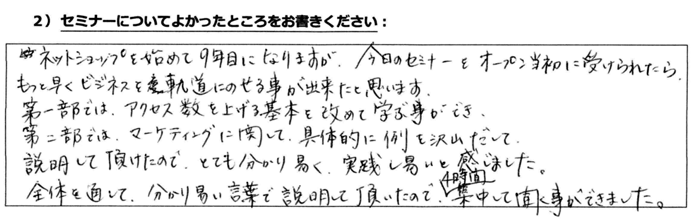 2）セミナーについてよかったところをお書きください：
ネットショップを始めて9年目になりますが、今日のセミナーをオープン当初に受けられたら、
もっと早くビジネスを軌道にのせる事が出来たと思います。
第一部では、アクセス数を上げる基本を改めて学ぶ事ができ、
第二部では、マーケティングに関して、具体的に例を沢山だして、
説明して頂けたので、とても分かり易く、実践し易いと感じました。
全体を通して、分かり易い言葉で説明して頂いたので、4時間集中して聞く事ができました。